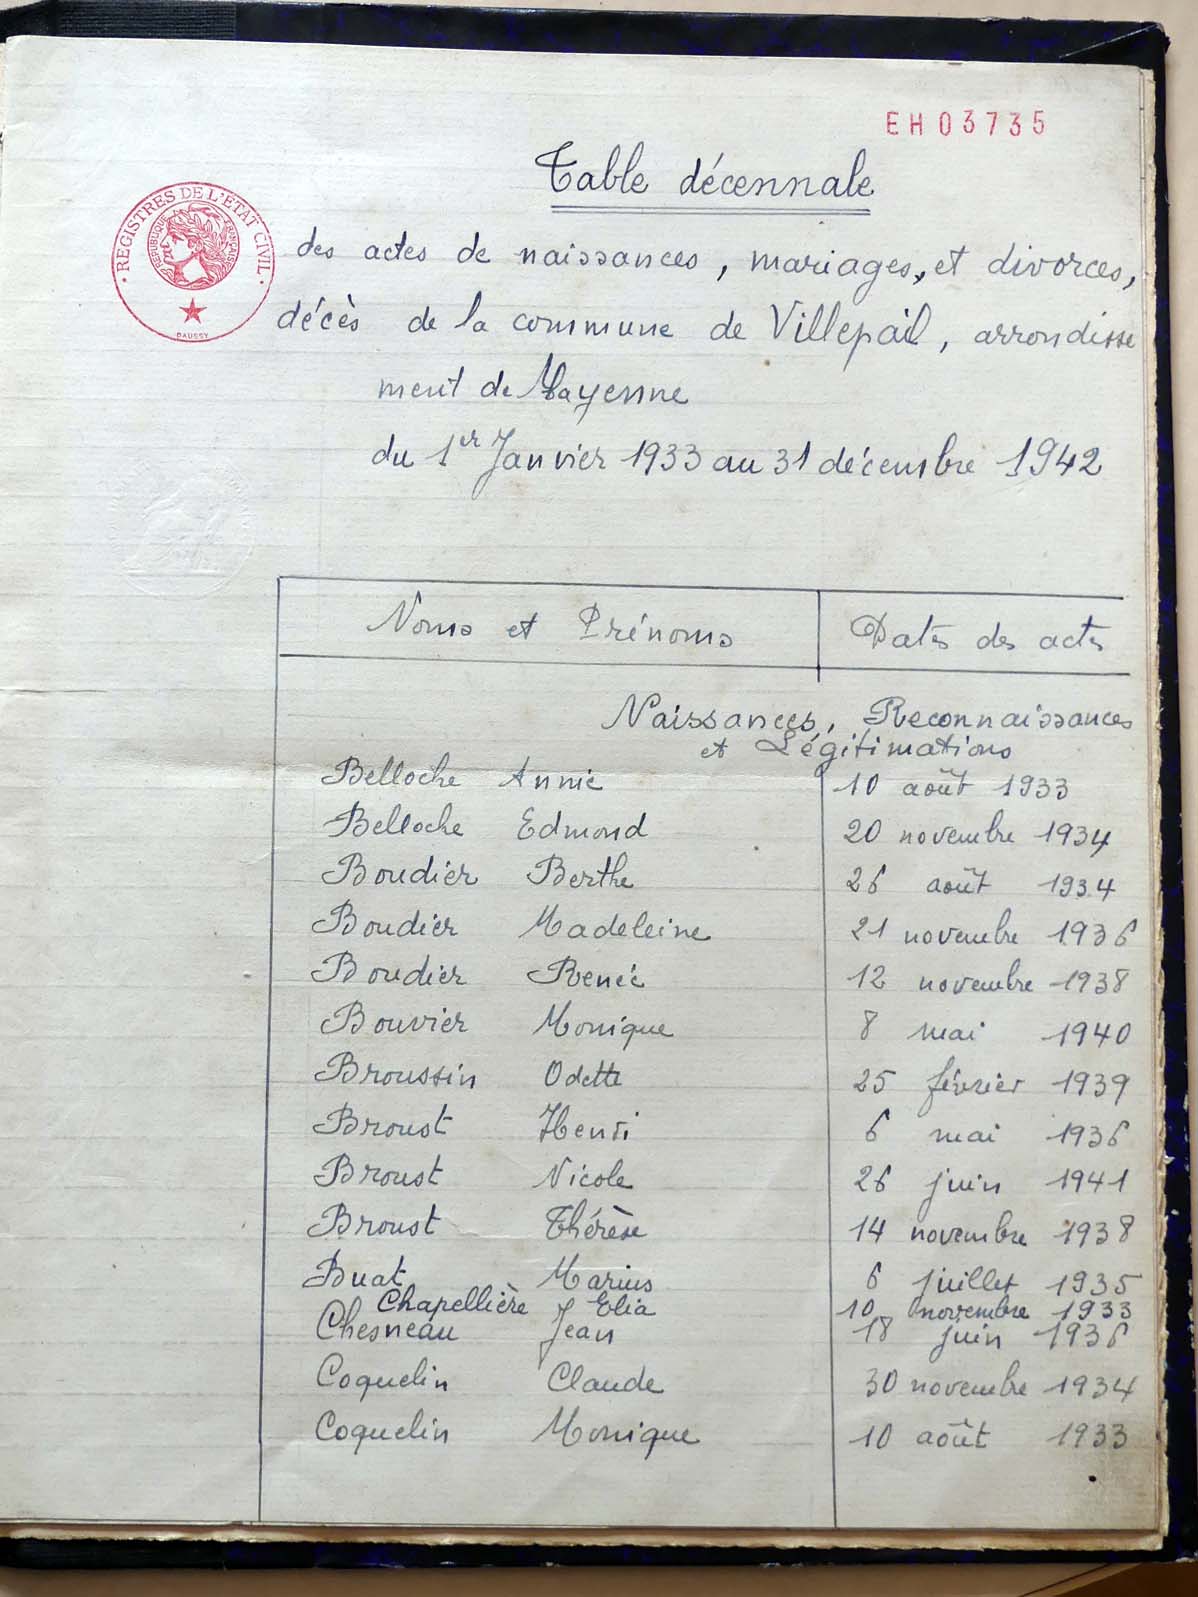 EH03735
Table décennale
REGISTRES DE L'ETAT CIVIL
REPUBLIQUE FRANÇAISE
DAUSSY
des actes de naissances, mariages, et divorces,
décès de la commune de Villepail, arrondisse
ment de Mayenne
du 1er Janvier 1933 au 31 décembre 1942
Noms et Prénoms Dates des actes
Naissances, Reconnaissances
et Légitimations
Belloche Annie 10 août 1933
Belloche Edmond 20 novembre 1934
Boudier Berthe 26 août 1934
Boudier Madeleine 21 novembre 1936
Boudier Renée 12 novembre 1938
Bouvier Monique 8 mai 1940
Broussin Odette 25 février 1939
Broust Henri 6 mai 1936
Broust Nicole 26 juin 1941
Broust Thérèse 14 novembre 1938
Buat Marius 6 juillet 1935
Chapellière Elia 10 novembre 1933
Chesneau Jean 18 juin 1936
Coquelin Claude 30 novembre 1934
Coquelin Monique 10 août 1933